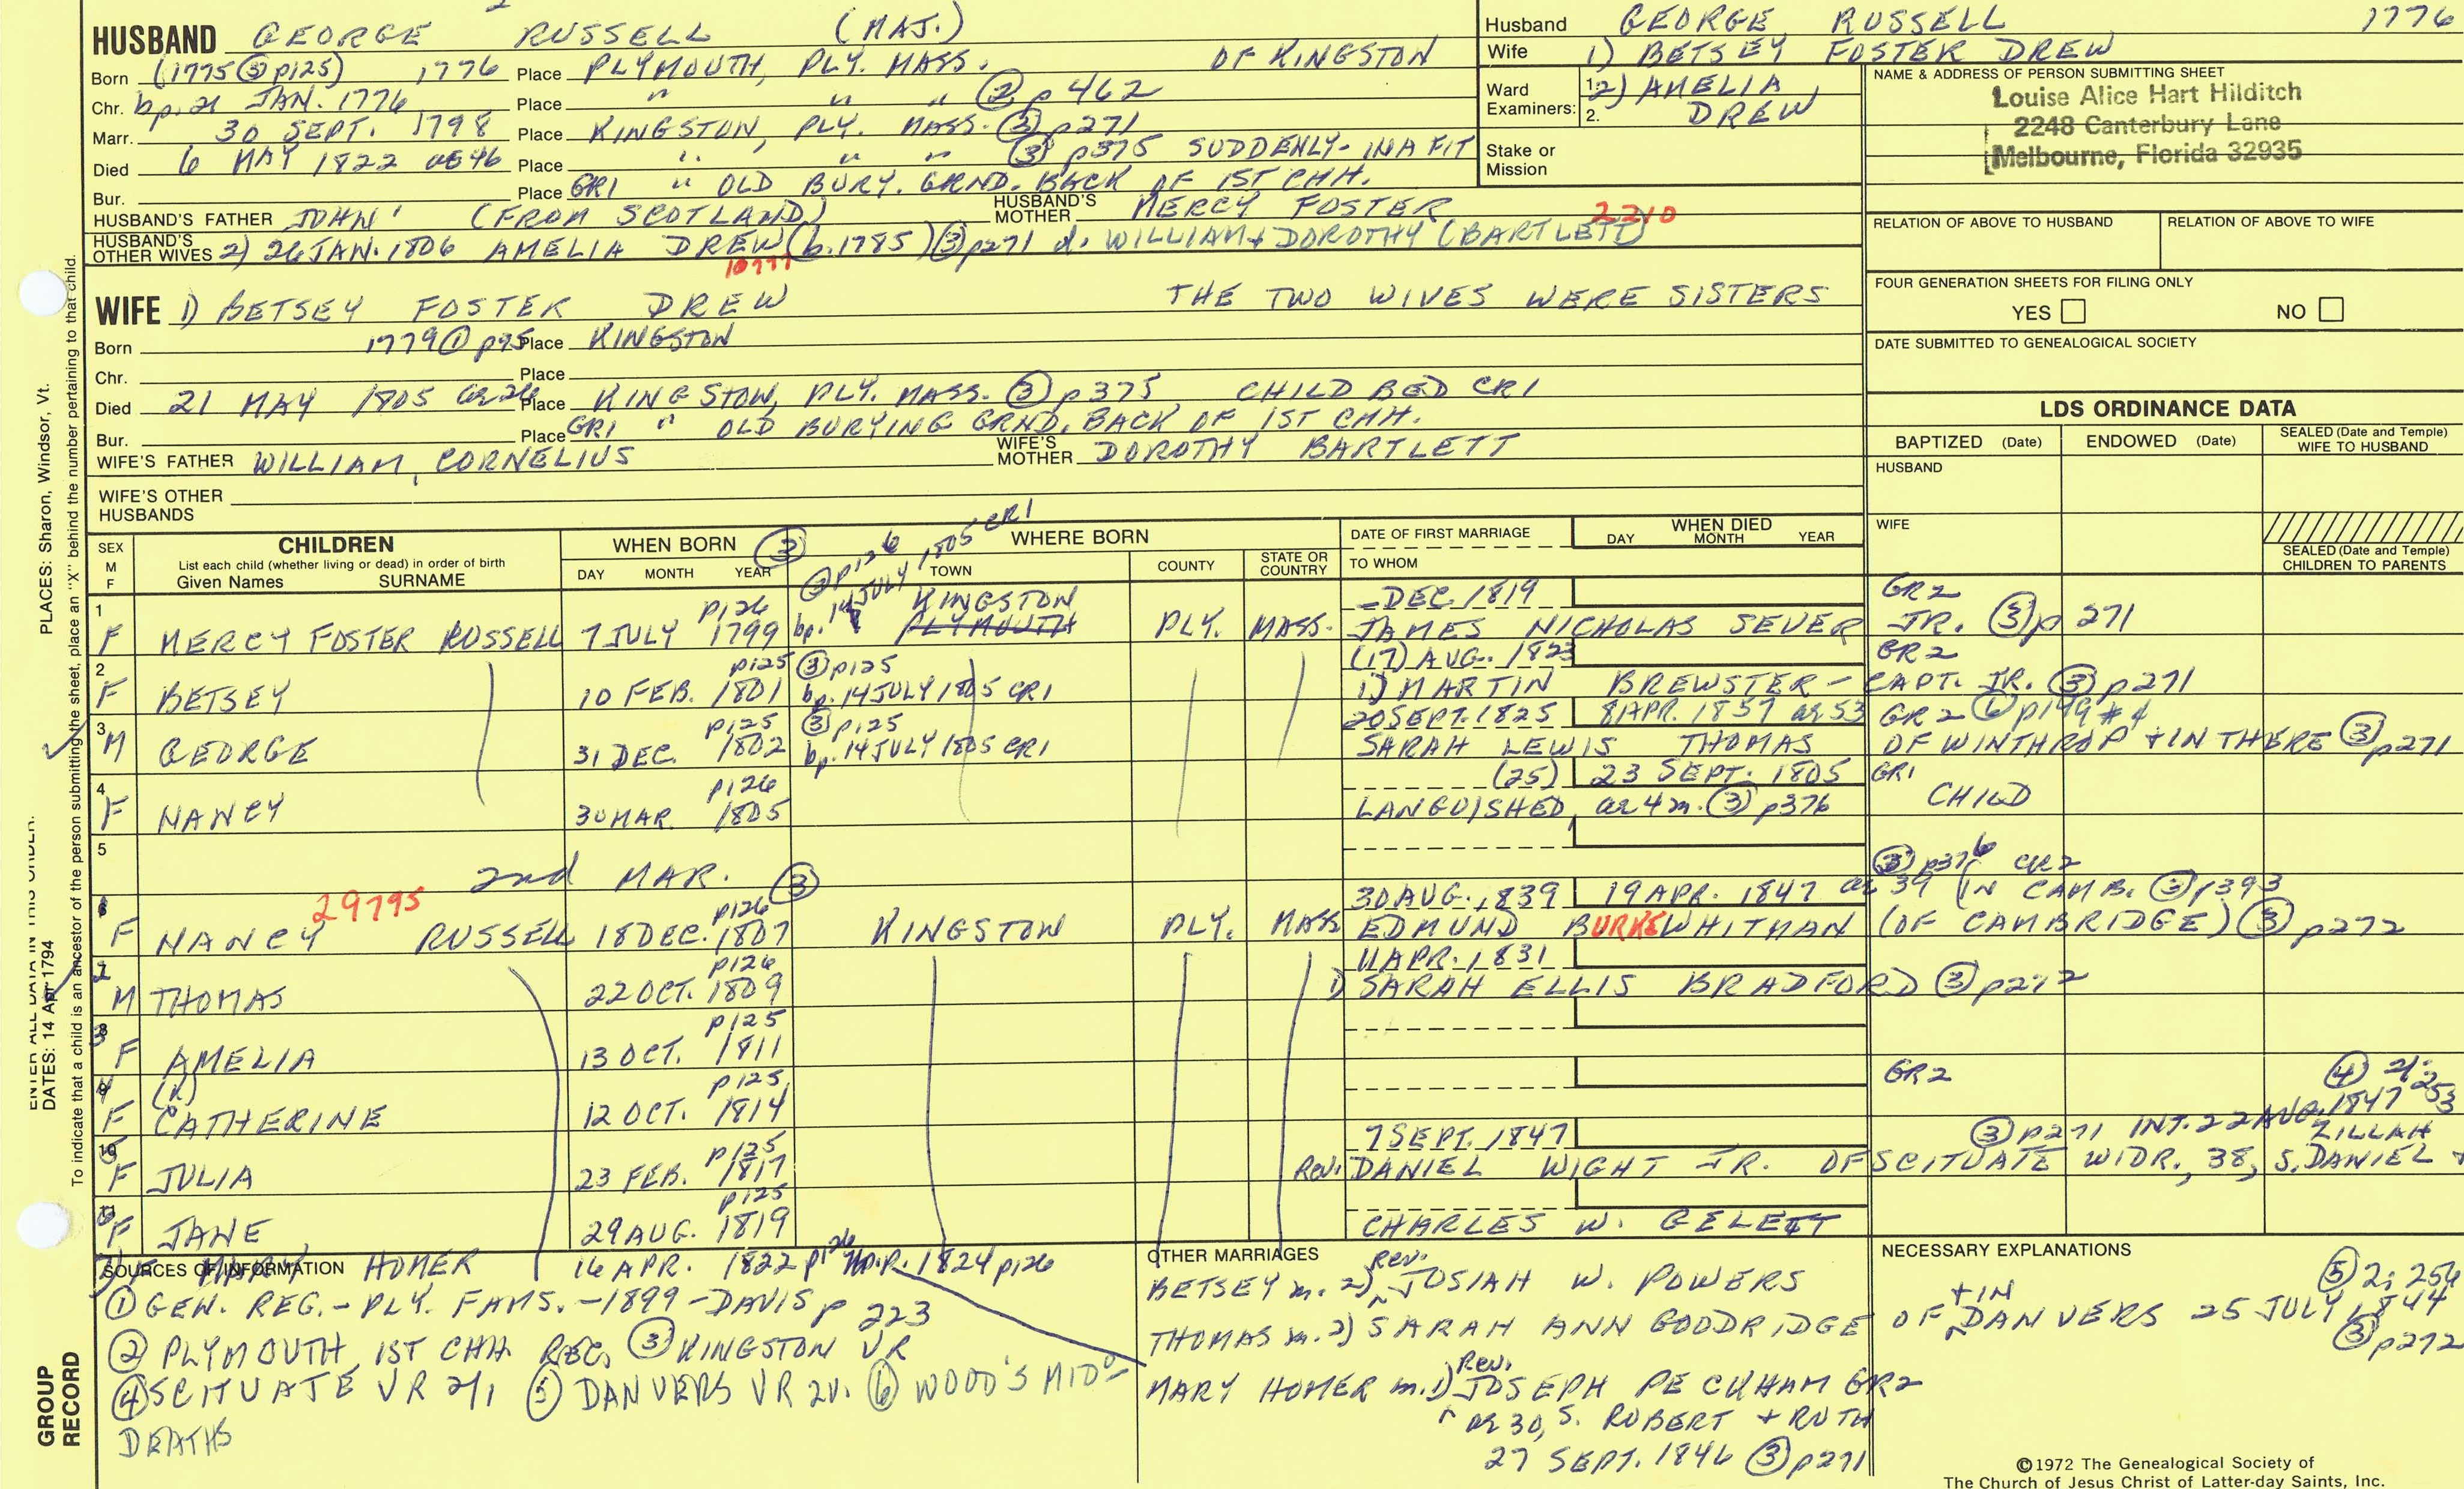 HUSBAND GEORGE RUSSELL (MAJ.)
Born (1775 ③ p125) 1776 Place PLYMOUTH, PLY. MASS. OF KINGSTON
Chr. bp. 21 JAN. 1776 Place " " " ② p 462
Marr. 30 SEPT. 1798 Place KINGSTON, PLY. MASS. ③ p271
Died 6 MAY 1822 ae 46 Place " " " ③ p375 SUDDENLY - IN A FIT
Bur. Place GR1 " OLD BURY. GRND. BACK OF 1ST CHH.
HUSBAND'S FATHER JOHN' (FROM SCOTLAND) HUSBAND'S MOTHER MERCY FOSTER
2210
HUSBAND'S OTHER WIVES 2) 26 JAN. 1806 AMELIA DREW (b. 1785) ③ p271 d. WILLIAM + DOROTHY (BARTLETT)
10777
Husband GEORGE RUSSELL 1776
Wife 1) BETSEY FOSTER DREW
Ward Examiners: 1. 2) AMELIA
2. DREW
Stake or Mission
NAME & ADDRESS OF PERSON SUBMITTING SHEET
Louise Alice Hart Hilditch
2248 Canterbury Lane
Melbourne, Florida 32935
RELATION OF ABOVE TO HUSBAND RELATION OF ABOVE TO WIFE
FOUR GENERATION SHEETS FOR FILING ONLY
YES NO
DATE SUBMITTED TO GENEALOGICAL SOCIETY
WIFE 1) BETSEY FOSTER DREW THE TWO WIVES WERE SISTERS
Born 1779 ① p95 Place KINGSTON
Chr. Place
Died 21 MAY 1805 ae 26 Place KINGSTON, PLY. MASS. ③ p375 CHILD BED CR1
Bur. Place GR1 " OLD BURYING GRND. BACK OF 1ST CHH.
WIFE'S FATHER WILLIAM, CORNELIUS WIFE'S MOTHER DOROTHY BARTLETT
WIFE'S OTHER HUSBANDS
LDS ORDINANCE DATA
BAPTIZED (Date) ENDOWED (Date) SEALED (Date and Temple) WIFE TO HUSBAND
HUSBAND
WIFE
SEALED (Date and Temple) CHILDREN TO PARENTS
SEX M F CHILDREN List each child (whether living or dead) in order of birth Given Names SURNAME
WHEN BORN ③ DAY MONTH YEAR
WHERE BORN TOWN COUNTY STATE OR COUNTRY
DATE OF FIRST MARRIAGE TO WHOM
WHEN DIED DAY MONTH YEAR
③ p126 bp. 14 JULY 1805 CR1
p126 KINGSTON - DEC. 1819 GR2
1 F MERCY FOSTER RUSSELL 7 JULY 1799 PLYMOUTH PLY. MASS. JAMES NICHOLAS SEVER JR. ③ p 271
p125 ③ p125 (17) AUG. 1823 GR2
2 F BETSEY 10 FEB. 1801 bp. 14 JULY 1805 CR1 1) MARTIN BREWSTER - CAPT. JR. ③ p271
p125 ③ p125 20 SEPT. 1825 8 APR. 1857 ae 53 GR2 ⑥ p199 #4
3 M GEORGE 31 DEC. 1802 bp. 14 JULY 1805 CR1 SARAH LEWIS THOMAS OF WINTHROP + IN THERE ③ p271
p126 (25) 23 SEPT. 1805 GR1
4 F NANCY 30 MAR. 1805 LANGUISHED, ae 4 m. ③ p376 CHILD
5 2nd MAR. ③
③ p376 GR2
29795 p126 30 AUG. 1839 19 APR. 1847 ae 39 (IN CAMB. ③ p393
F NANCY RUSSELL 18 DEC. 1807 KINGSTON PLY. MASS. EDMUND BURKE WHITMAN (OF CAMBRIDGE) ③ p272
p126 11 APR. 1831
M THOMAS 22 OCT. 1809 1) SARAH ELLIS BRADFORD ③ p272
p125
F AMELIA 13 OCT. 1811
(K) p125 GR2
F CATHERINE 12 OCT. 1814
④ 2: 253
p125 7 SEPT. 1847 ③ p271 INT. 22 AUG. 1847 ZILLAH
F JULIA 23 FEB. 1817 Rev. DANIEL WIGHT JR. OF SCITUATE WIDR., 38, S. DANIEL +
p125
F JANE 29 AUG. 1819 CHARLES W. GELETT
7) F MARY HOMER 16 APR. 1822 p126 1824 p126
SOURCES OF INFORMATION
① GEN. REG. - PLY. FAMS. - 1899 - DAVIS p 223
② PLYMOUTH 1ST CHH. REC. ③ KINGSTON VR
④ SCITUATE VR 2/1 ⑤ DANVERS VR 2v. ⑥ WOOD'S MIDº
DEATHS
OTHER MARRIAGES
BETSEY m. 2) Rev. JOSIAH W. POWERS
THOMAS m. 2) SARAH ANN GOODRIDGE OF + IN DANVERS 25 JULY 1844
MARY HOMER m. 1) Rev. JOSEPH PECKHAM GR2
ae 30, S. ROBERT + RUTH
27 SEPT. 1846 ③ p271
NECESSARY EXPLANATIONS
⑤ 2: 254
③ p272
©1972 The Genealogical Society of
The Church of Jesus Christ of Latter-day Saints, Inc.
PLACES: Sharon, Windsor, Vt.
DATES: 14 Apr 1794
To indicate that a child is an ancestor of the person submitting the sheet, place an "X" behind the number pertaining to that child.
GROUP RECORD